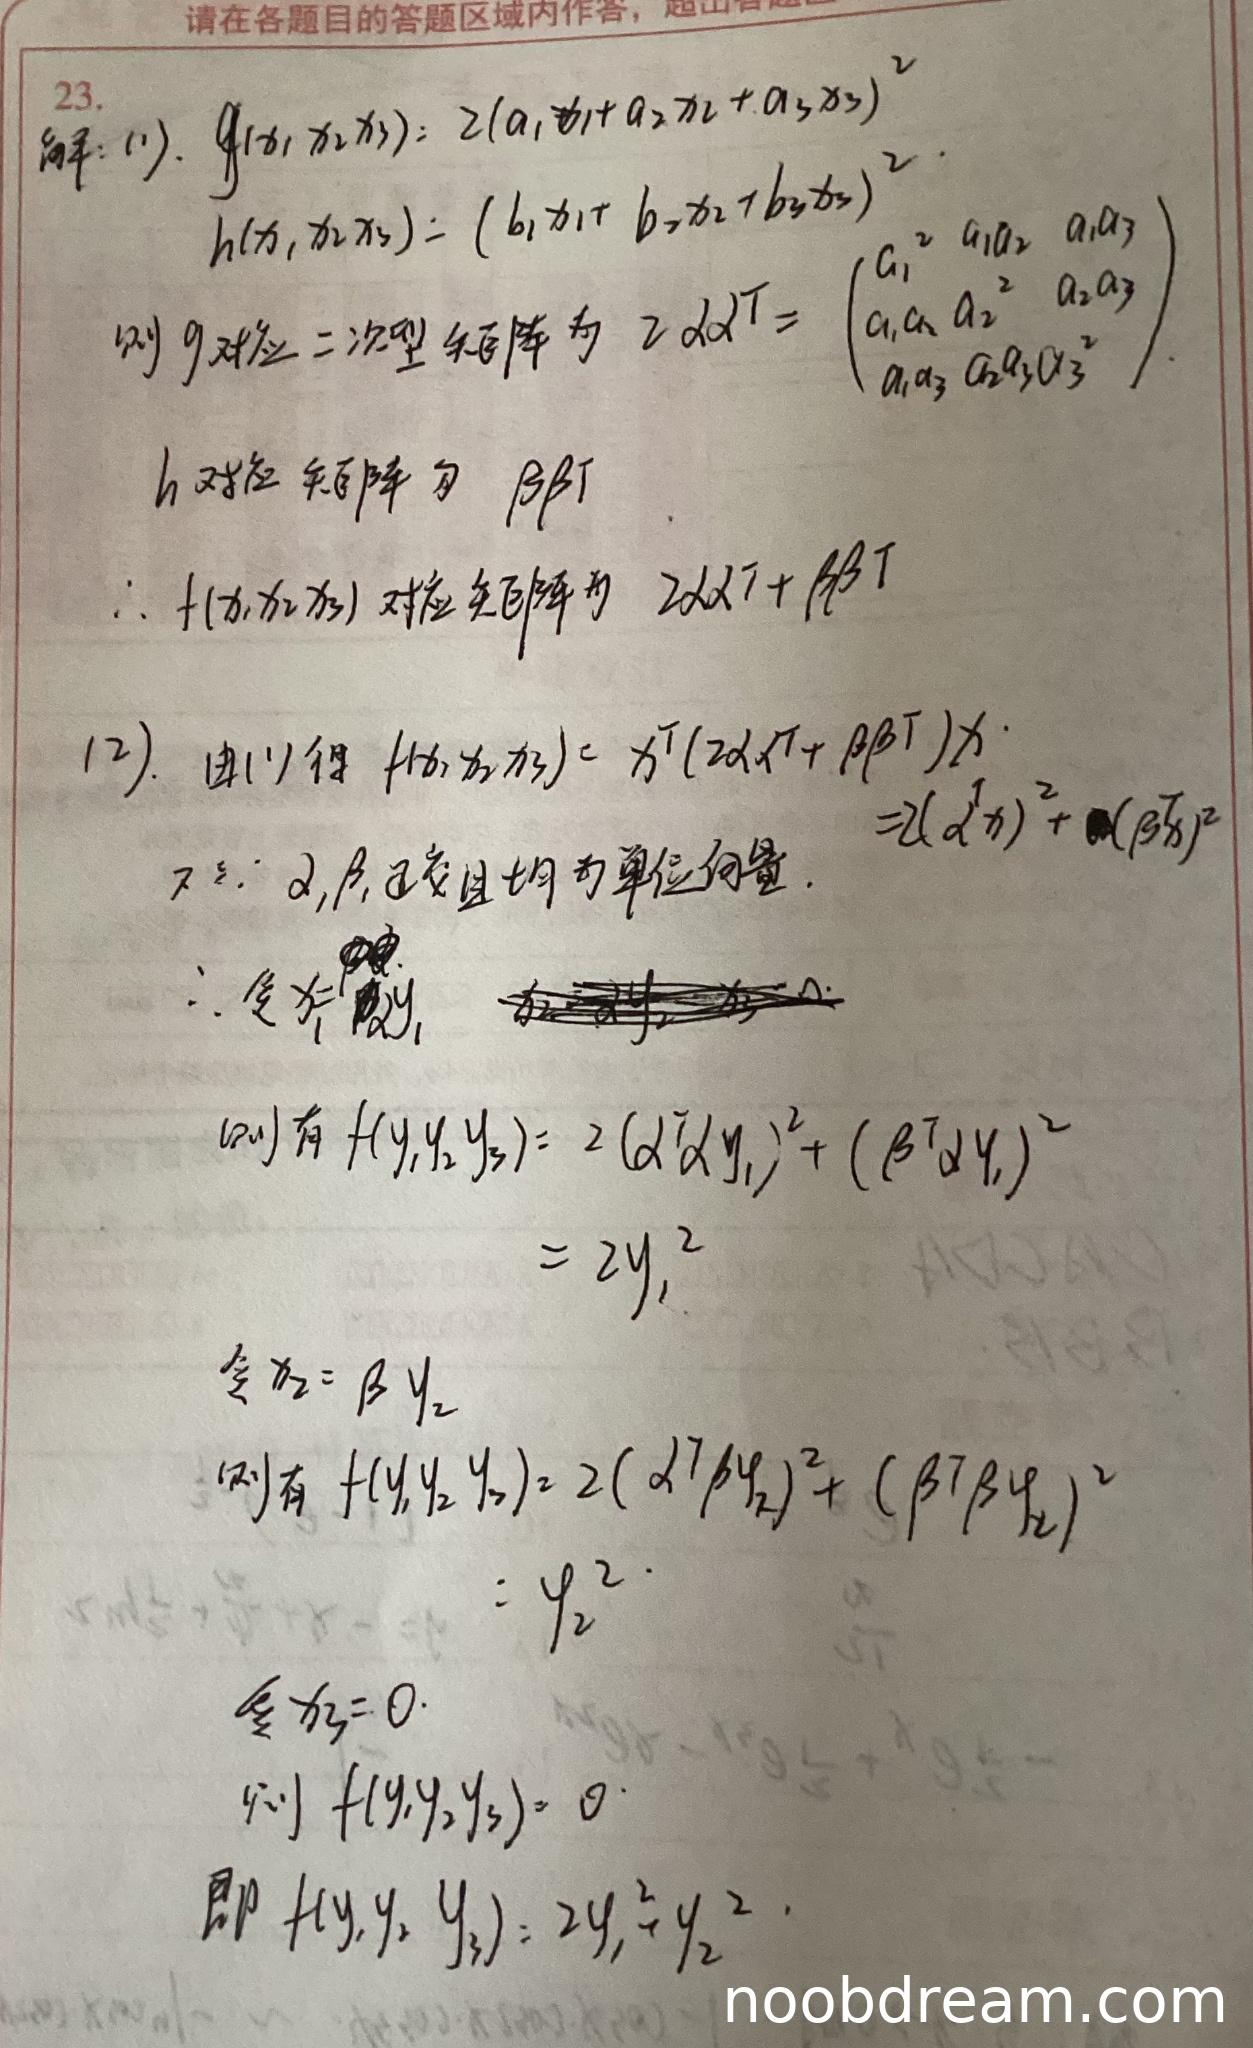 请在各题目的答题区域内作答，超出答题区
23.
解：(1). g(x₁ x₂ x₃)= 2(a₁x₁+a₂x₂+a₃x₃)²
h(x₁ x₂ x₃)= (b₁x₁+b₂x₂+b₃x₃)².
则 g对应二次型矩阵为 2αα^T = ( a₁² a₁a₂ a₁a₃
a₁a₂ a₂² a₂a₃
a₁a₃ a₂a₃ a₃² ).
h对应矩阵为 ββ^T
∴ f(x₁ x₂ x₃) 对应矩阵为 2αα^T+ββ^T
(2). 由(1)得 f(x₁ x₂ x₃)= x^T(2αα^T+ββ^T)x.
=2(α^Tx)²+(β^Tx)²
又∵ α,β,正交且均为单位向量.
∴ 令x₁=αy₁
则有 f(y₁y₂y₃)= 2(α^Tαy₁)²+(β^Tαy₁)²
= 2y₁²
令x₂= βy₂
则有 f(y₁y₂y₃)= 2(α^Tβy₂)²+(β^Tβy₂)²
= y₂².
令x₃=0.
则 f(y₁y₂y₃)= 0.
即 f(y₁y₂y₃)= 2y₁²+y₂².
noobdream.com